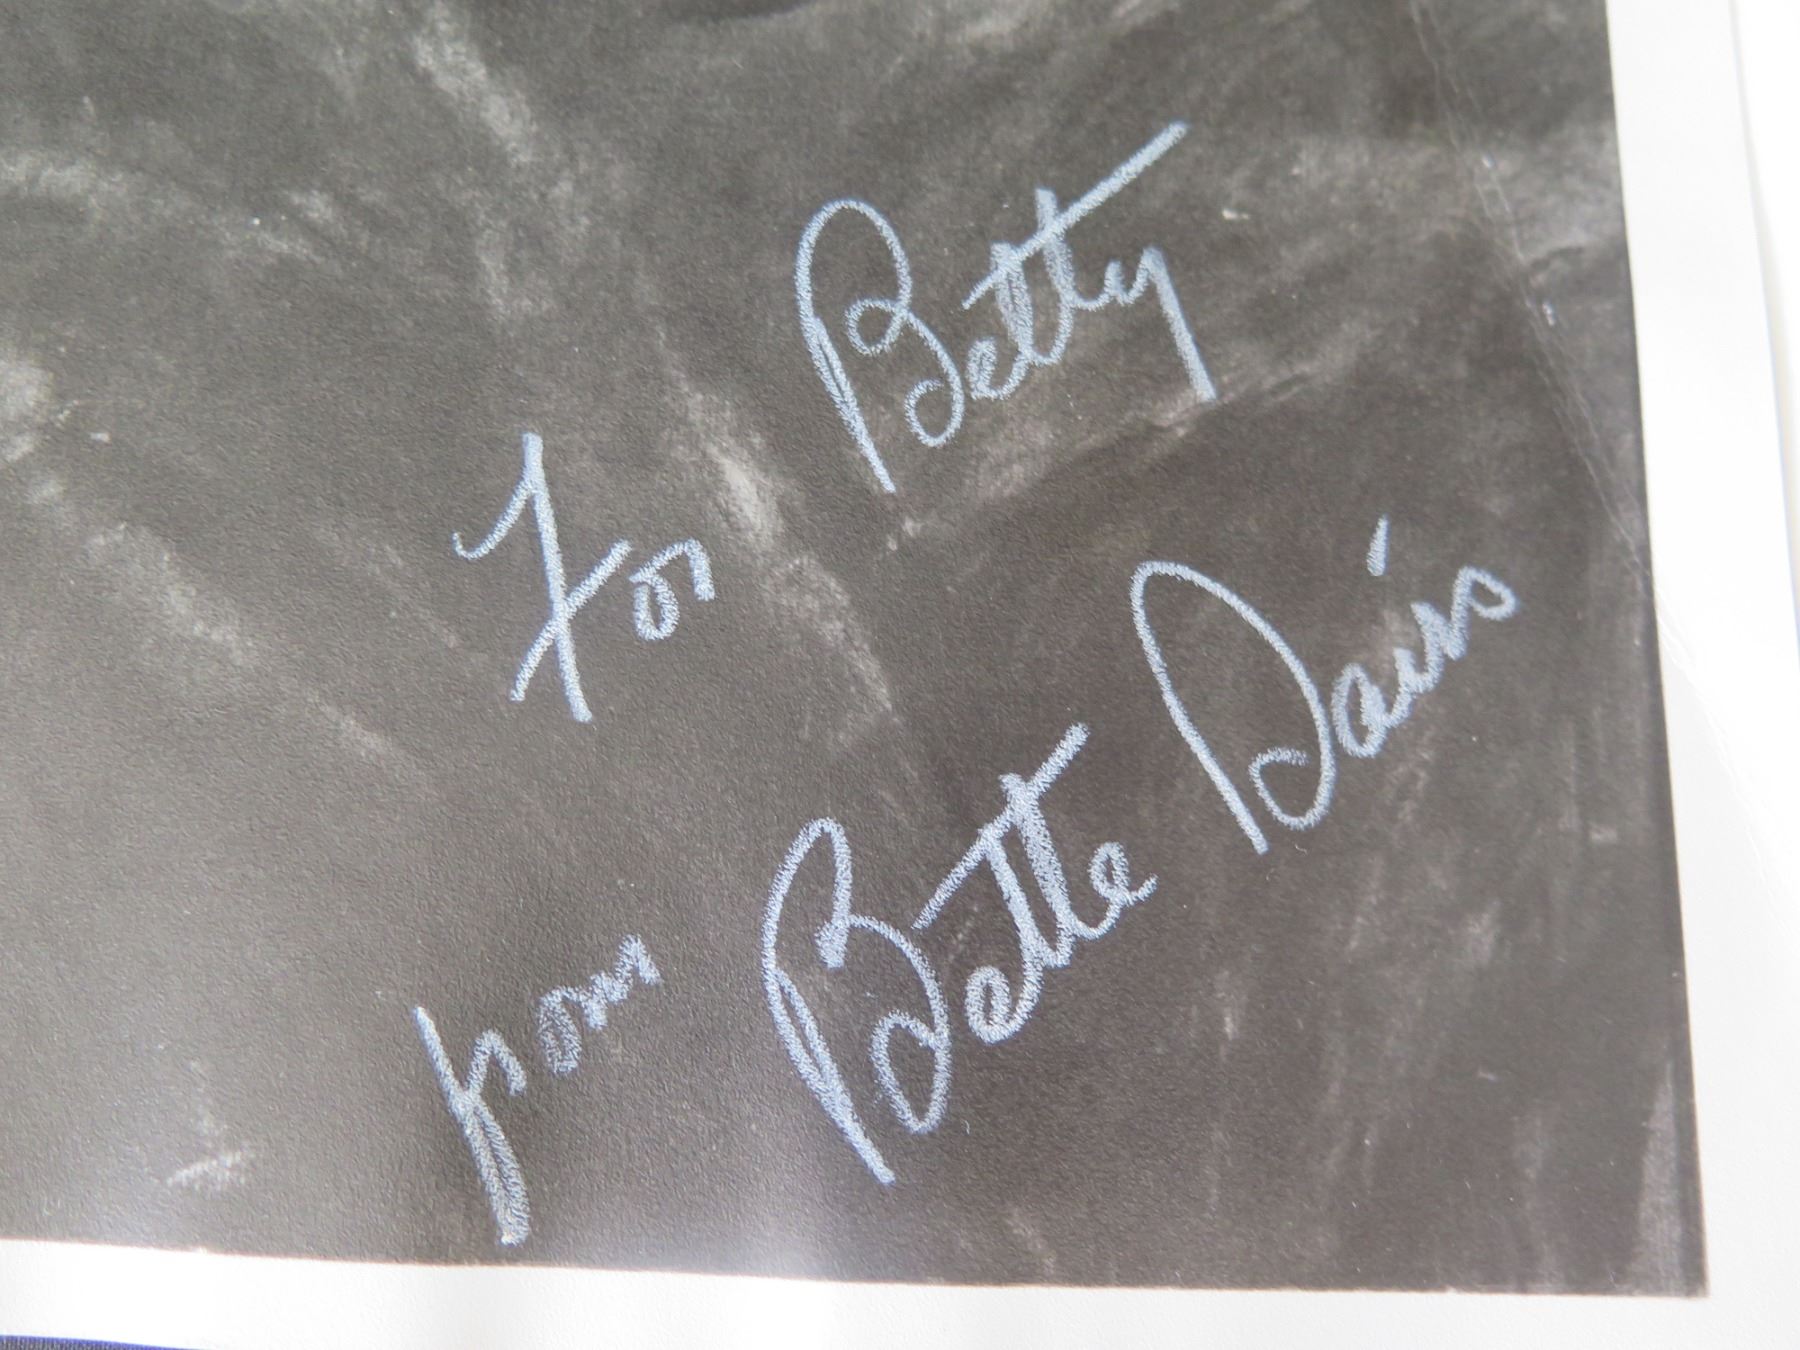 For Betty
from Bette Davis